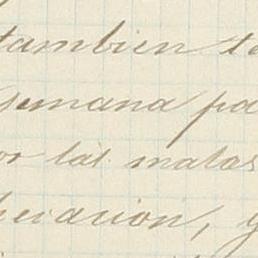 tambien te
semana pa
or las matas
eracion, y